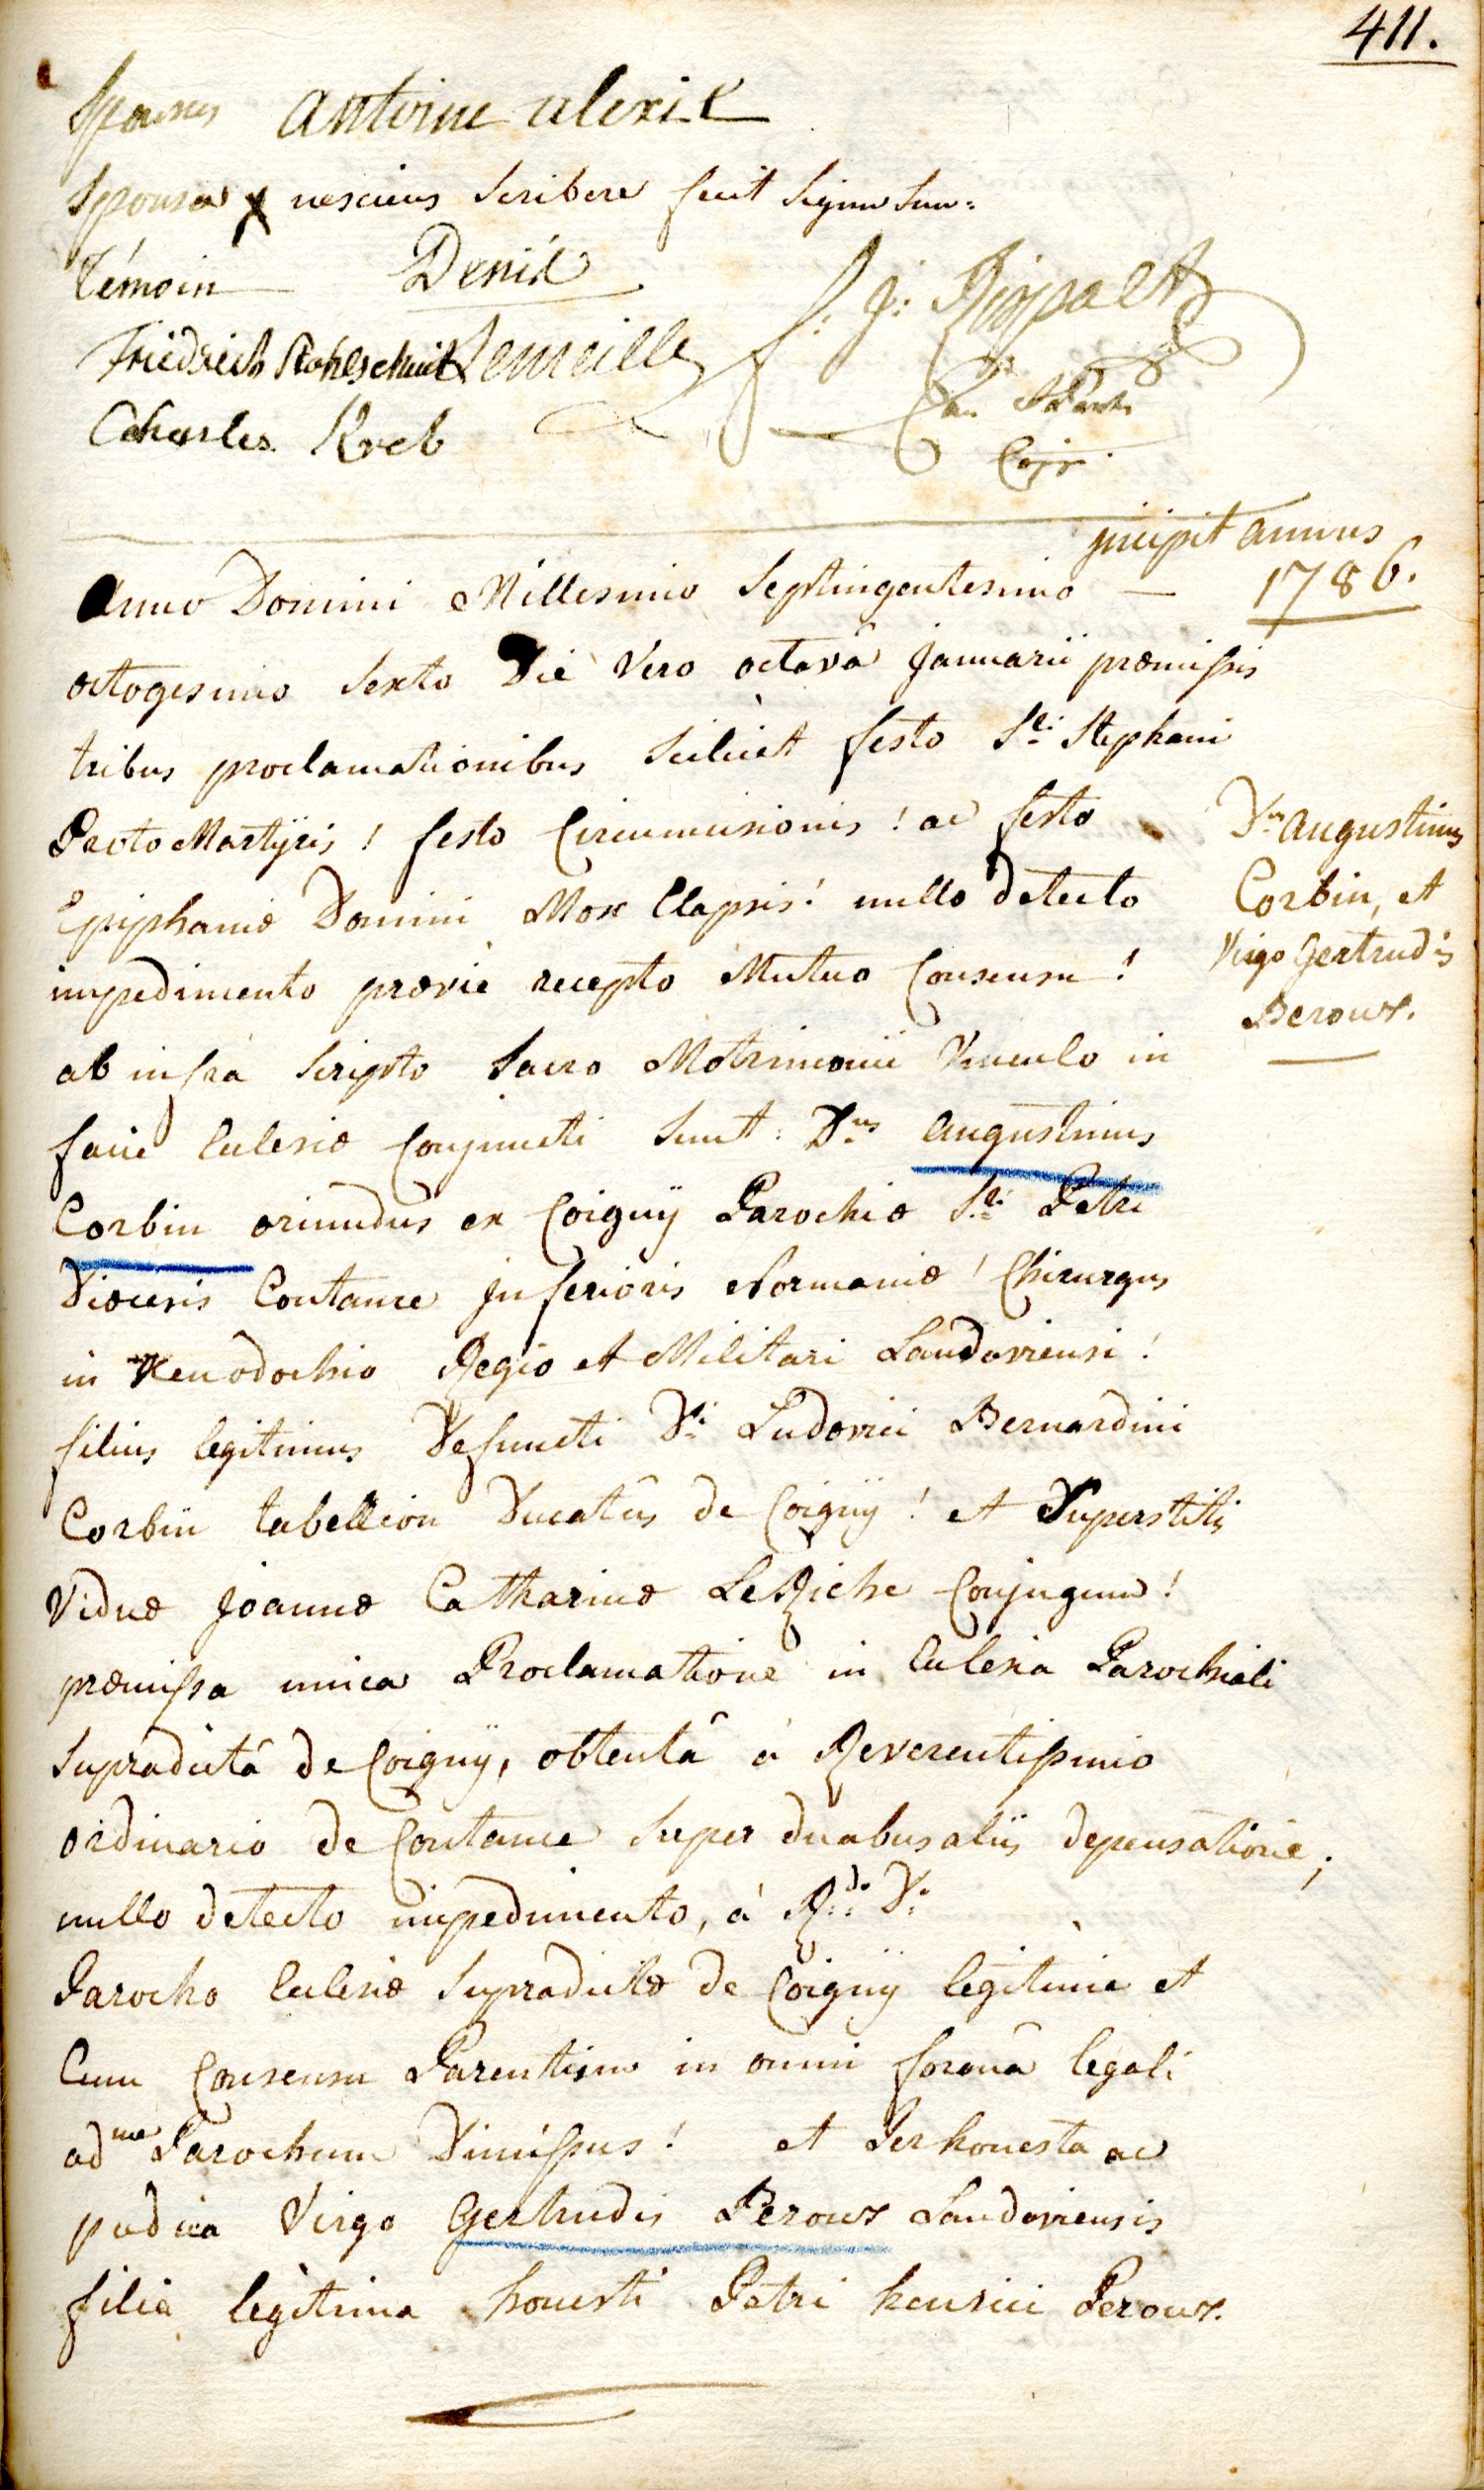 411.
Sponsus Antoine alexil
Sponsa x nesciens scribere fecit signu suu:
Témoin Denié
f: J: Ruppalt
Friedrich Kohlschmit Lemeille
Charles Kreb
jncipit annus
1786.
Anno Domini Millesimo Septingentesimo —
octogesimo sexto Die Vero octavâ Januarii præmissis
tribus proclamationibus scilicet festo Sti Stephani
ProtoMartÿris ! festo Circumcisionis ! ac festo
Epiphaniæ Domini Mox Elapsis ! nullo detecto
impedimento prævie recepto Mutuo Consensu !
ab infrà scripto sacro Matrimonii Vinculo in
facie Eclesiæ Conjuncti sunt : Dnus Augustinus
Corbin oriundus ex Coignÿ Parochiæ Sti Petri
Diœcesis Coutance Jnferioris Normaniæ ! Chirurgus
in Xenodochio Regio et Militari Landaviensi !
filius legitimus Defuncti Di Ludovici Bernardini
Corbin tabellion Ducatûs de Coignÿ ! et Superstitis
Viduæ Joannæ Catharinæ LeRiche Conjugum !
præmissa unica Proclamatione in Eclesia Parochiali
supradictâ de Coignÿ, obtentâ à Reverentissimo
ordinario de Coutance super duabus aliis depensatione ;
nullo detecto impedimento, à Rdo Do
Parocho Eclesiæ supradictæ de Coignÿ legitime et
Cum Consensu Parentum in omni formâ legali
ad me Parochum Dimissus ! et Perhonesta ac
pudica Virgo Gertrudis Peroux Landaviensis
filia legitima honesti Petri henrici Peroux.
Dnus Augustinus
Corbin, et
Virgo Gertrudis
Beroux.